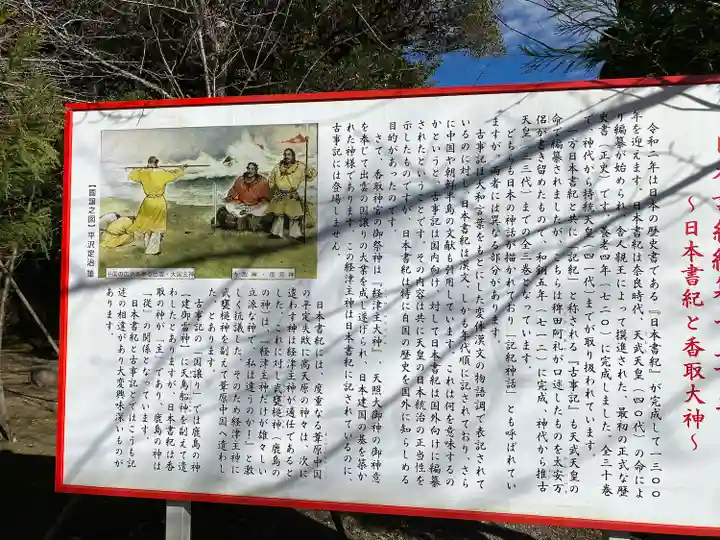 ～日本書紀と香取大神～
令和二年は日本の歴史書である『日本書紀』が完成して一三〇〇
年を迎えます。日本書紀は奈良時代、天武天皇（四〇代）の命によ
り編纂が始められ、舎人親王によって撰進された、最初の正式な歴
史書（正史）です。養老四年（七二〇）に完成しました。全三十巻
で、神代から持統天皇（四一代）までが取り扱われています。
一方日本書紀と共に「記紀」と称される『古事記』も天武天皇の
命で編纂されましたが、こちらは稗田阿礼が口述したものを太安万
侶が書き留めたもので、和銅五年（七一二）に完成、神代から推古
天皇（三三代）までの全三巻となっています。
どちらも日本の神話が描かれており「記紀神話」とも呼ばれてい
ますが、両者には異なる部分があります。
古事記は大和言葉をもとにした変体漢文の物語調で表記されて
いるのに対し、日本書紀は漢文、しかも年代順に記されており、さら
に中国や朝鮮半島の文献も引用しています。これは何を意味するの
かというと、古事記は国内向け、対して日本書紀は国外向けに編纂
されたということです。その内容は共に天皇の日本統治の正当性を
示したものですが、日本書紀は特に自国の歴史を国外に知らしめる
目的があったのです。
さて、香取神宮の御祭神は「経津主大神」、天照大御神の御神意
を奉じて出雲の国譲りの大業を成し遂げられ、日本建国の基を築か
れた神様であります。この経津主神は日本書紀に記されているのに、
古事記には登場しません。
【國譲之図】平沢定治 謹
中国の広さを測る出雲・大国主神
香取神・鹿島神
日本書紀には、度重なる葦原中国
の平定失敗に高天原の神々は、次に
遣わす神は経津主神が適任であると
した。これに対し武甕槌神（鹿島の
大神）は、「経津主神だけが雄々しい
立派な神で、私は違うのか！」と激
しく抗議した。そのため経津主神に
武甕槌神を副えて葦原中国へ遣わし
た、とあります。
古事記の「国譲り」では鹿島の神
「建御雷神」に天鳥船神を副えて遣
わしたとありますが、日本書紀は香
取の神が「主」であり、鹿島の神は
「従」の関係となっています。
日本書紀と古事記とではこうも記
述の相違があり大変興味深いものが
あります。